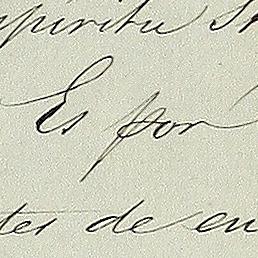 Espiritu S
Es por
tes de en